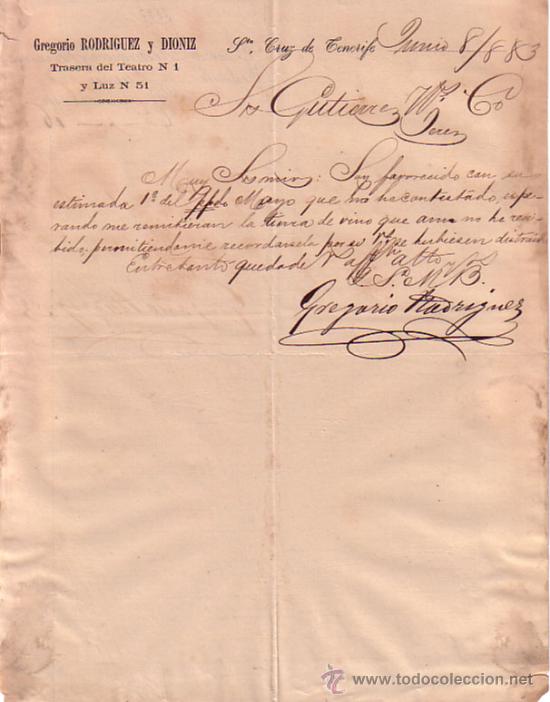 Gregorio RODRIGUEZ y DIONIZ
Trasera del Teatro N 1
y Luz N 51
Sta. Cruz de Tenerife Junio 8/883
Gutierrez Co
Jerez
Muy Sr mio: Soy favorecido con su
estimada 1º del Mayo que no he contestado, espe-
rando me remitieran la de vino que aun no he reci-
bido, permitiendome recordarsela por si Vs. se hubiesen
Entretanto queda de V atto
Q S M B.
Gregorio Rodriguez
todocoleccion.net